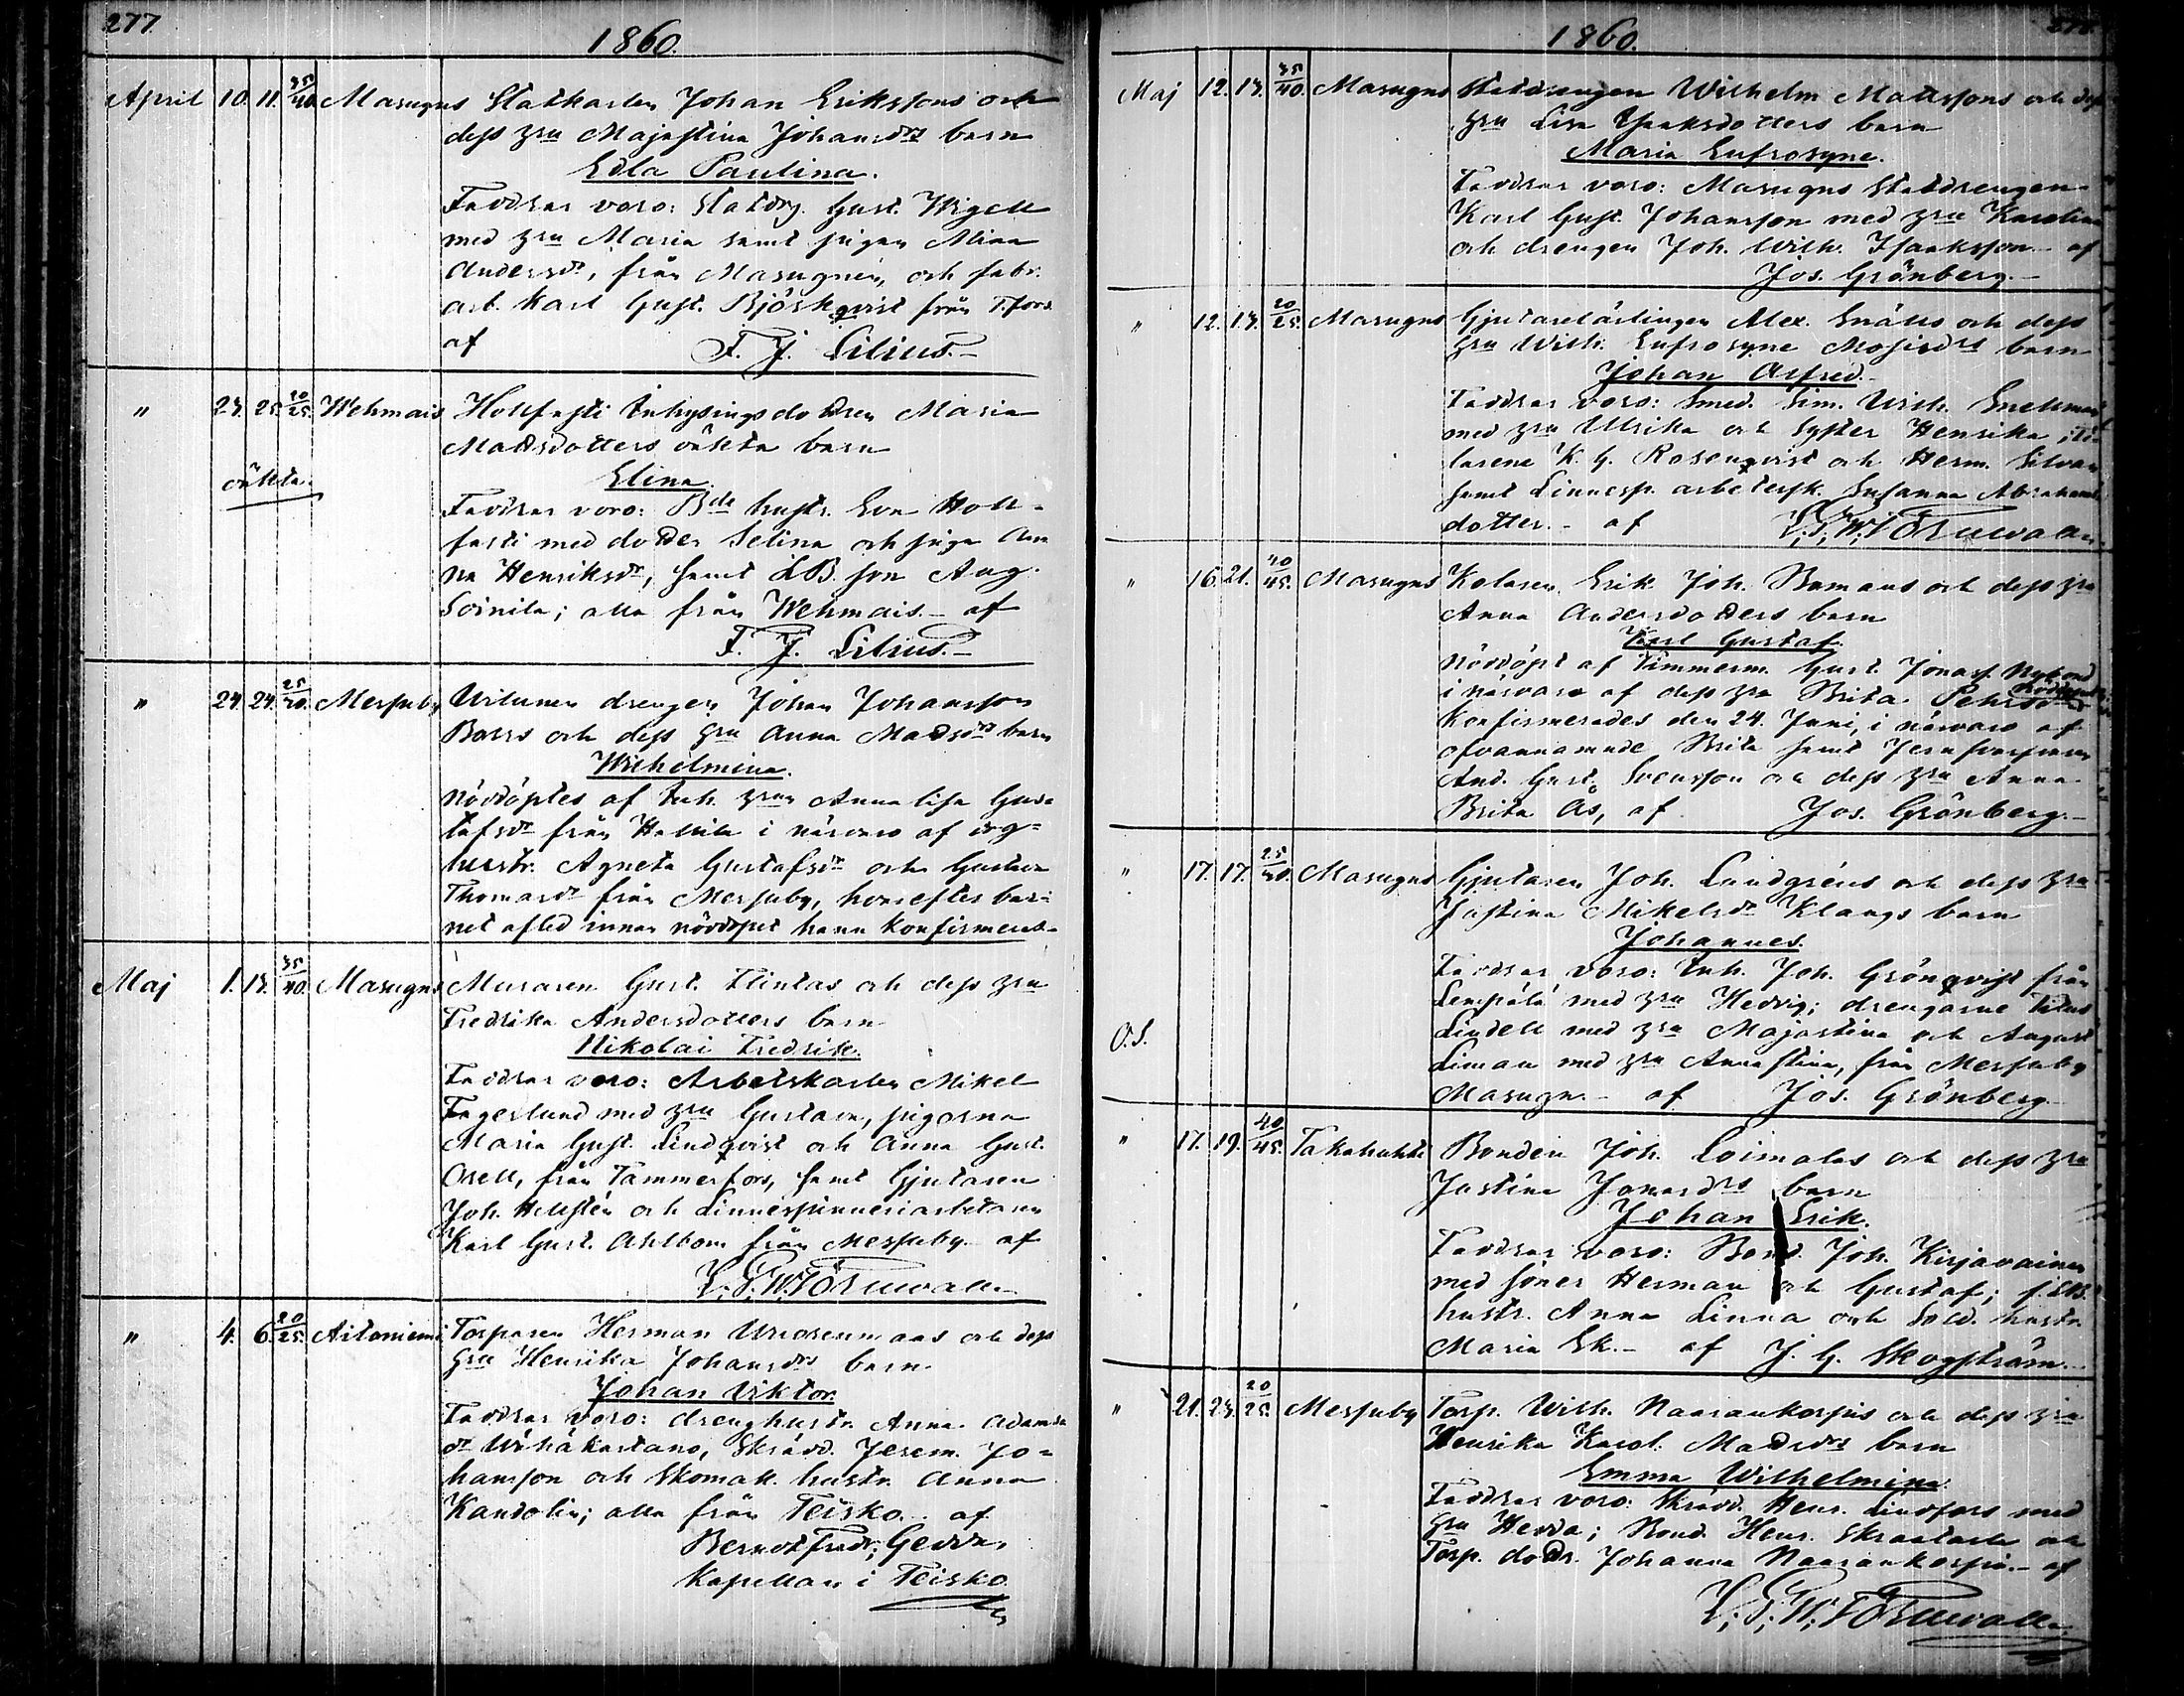 277.
1860.
April 10. 11. 35/40. Masugns Statkarlen Johan Erikssons och
dess hru Majastina Johansdrs barn
Edla Paulina.
Faddrar voro: Statdrg. Gust. Wigell
med hru Maria samt pigan Mina
Andersdr, från Masugnen, och fabr.
arb. Karl Gust. Björkqvist från T.fors.
af F. J. Lilius.-
" 23. 25. 20/25. Wehmais Hollfasti Inhysingsdottren Maria
Mattsdotters oäkta barn
Elina.
oäkta.
Faddrar voro: Bde hustr. Eva Holl-
fasti med dotter Selina och piga An
na Henriksdr, samt LB. son Aug.
Soinila; alla från Wehmais.- af
F. J. Lilius.-
" 24. 24. 25/30. Messuby drengen Johan Johansson
Barrs och dess hru Anna Mattsdrs barn
Wilhelmina.
Nöddöptes af Inh. hrun Annalisa Gus-
tafsdr från i närvaro af drg-
hustr. Agneta Gustafsdr och Gustava
Thomasdr från Messuby, hvarefter bar-
net afled innan nöddopet hann konfirmeras.-
Maj 1. 13. 35/40. Masugns Muraren Gust. Flintas och dess hru
Fredrika Andersdotters barn
Nikolai Fredrik.
Faddrar voro: Arbetskarlen Mikel
Fagerlund med hru Gustava, pigorna
Maria Gust. Lindqvist och Anna Gust.
Orell, från Tammerfors, samt Gjutaren
Joh. Hellstén och Linnespinneriarbetaren
Karl Gust. Ahlbom från Messuby.- af
L. T. W. Törnwall.-
" 4. 6. 20/25. Aitoniemi Torparen Herman och dess
hru Henrika Johansdrs barn
Johan Viktor.
Faddrar voro: drenghustr. Anna Adams-
dr Wähäkartano, Skrädd. Jerem. Jo-
hansson och Skomak. hustr. Anna
Kandolin; alla från Teisko. af
Berndt Fredr. Gedda,
Kapellan i Teisko
1860.
Maj 12. 13. 35/40. Masugns Statdrengen Wilhelm Mattssons och dess
hru Lisa Isaksdotters barn
Maria Eufrosyne.
Faddrar voro: Masugns Statdrengen
Karl Gust. Johansson med hru Karolina
och drengen Joh. Wilh. Isaksson.- af
Jos. Grönberg.-
" 12. 13. 20/25. Masugns Gjutarelärlingen Alex. och dess
hru Wilh. Eufrosyne Mosisdrs barn
Johan Alfred.-
Faddrar voro: Smed. Sim. Wilh. Snellman
med hru Ulrika och syster Henrika;
larena K. G. Rosenqvist och Herm. Silvan
samt Linnesp. arbetersk. Susanna Abrahams-
dotter.- af L. T. W. Törnwall.-
" 16. 21. 40/45. Masugns Kolaren Erik Joh. Bomans och dess hru
Anna Andersdotters barn
Karl Gustaf.
Nöddöpt af Timmerm. Gust. Jonass. Nylund
i närvaro af dess hru Brita Pehrsdr
Konfirmerades den 24. Juni, i närvaro af
ofvannämnde Brita samt
And. Gust. Svensson och dess hru Anna
Brita Ås, af Jos. Grönberg.-
" 17. 17. 25/30. Masugns Gjutaren Joh. Lundgréns och dess hru
Justina Mikelsdr Klangs barn
Johannes.
Faddrar voro: Inh. Joh. Grönqvist från
Lempälä med hru Hedvig; drengarne Titus
Lindell med hru Majastina och August
O.S.
Liman med hru Annastina, från Messuby
Masugn.- af Jos. Grönberg.-
" 17. 19. 40/45. Takahuhti Bonden Joh. Loimalas och dess hru
Justina Jonasdrs barn
Johan Erik.
Faddrar voro: Bond. Joh. Kirjavainen
med söner Herman och Gustaf; f. LB.
hustr. Anna Linna och Sold. hustr.
Maria Ek.- af J. G. Skogström.-
" 21. 23. 20/25. Messuby Torp. Wilh. Naarankorpis och dess hru
Henrika Karol. Mattsdrs barn
Emma Wilhelmina.
Faddrar voro: Skrädd. Henr. Lindfors med
hru Hedda; Bond. Henr. och
Torp. dottr. Johanna Naarankorpi.- af
L. T. W. Törnwall.